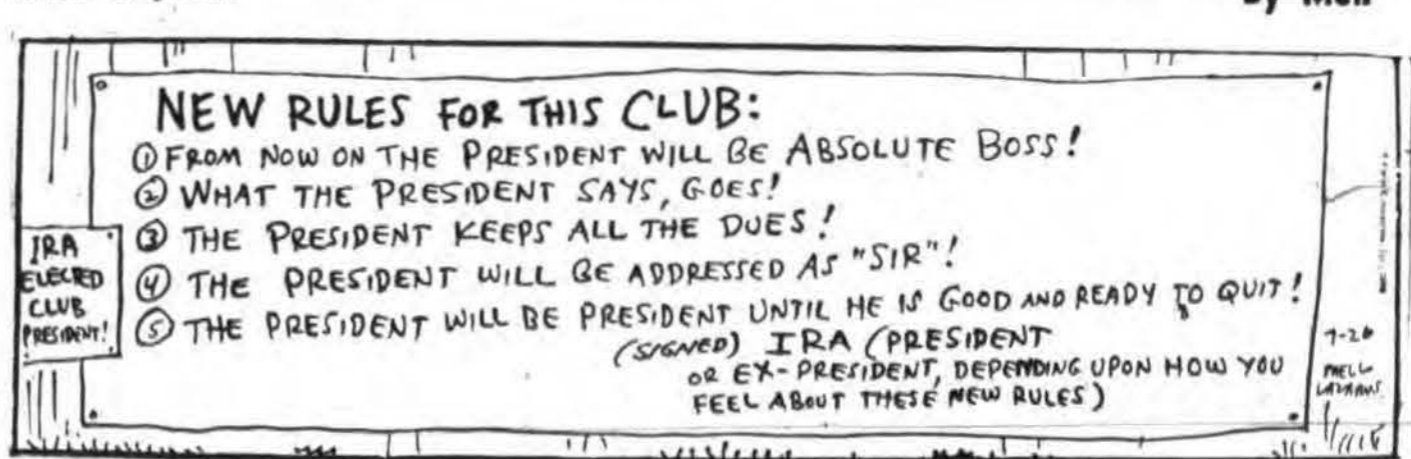 By Mell
NEW RULES FOR THIS CLUB:
① FROM NOW ON THE PRESIDENT WILL BE ABSOLUTE BOSS!
② WHAT THE PRESIDENT SAYS, GOES!
③ THE PRESIDENT KEEPS ALL THE DUES!
④ THE PRESIDENT WILL BE ADDRESSED AS "SIR"!
⑤ THE PRESIDENT WILL BE PRESIDENT UNTIL HE IS GOOD AND READY TO QUIT!
(SIGNED) IRA (PRESIDENT
OR EX-PRESIDENT, DEPENDING UPON HOW YOU
FEEL ABOUT THESE NEW RULES)
IRA
ELECTED
CLUB
PRESIDENT!
7-26
MELL
LAZARUS